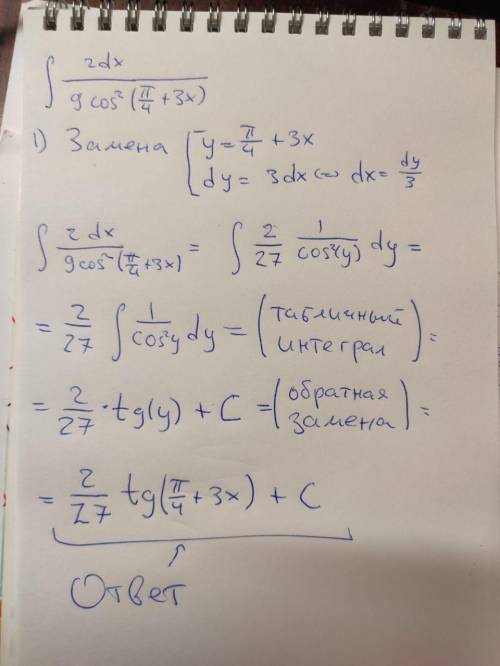 ∫ 2dx / 9cos²(π/4 + 3x)
1) Замена { y = π/4 + 3x
dy = 3dx ⇔ dx = dy/3
∫ 2dx / 9cos²(π/4 + 3x) = ∫ 2/27 1/cos²(y) dy =
= 2/27 ∫ 1/cos²y dy = (табличный интеграл) =
= 2/27 · tg(y) + C = (обратная замена) =
= 2/27 tg(π/4 + 3x) + C
Ответ